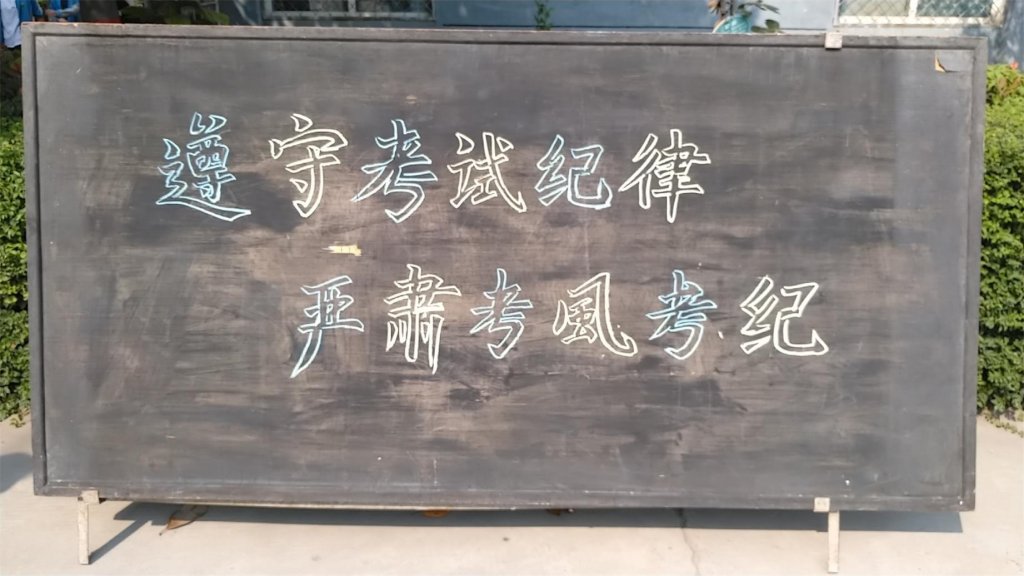 遵守考试纪律
严肅考風考纪